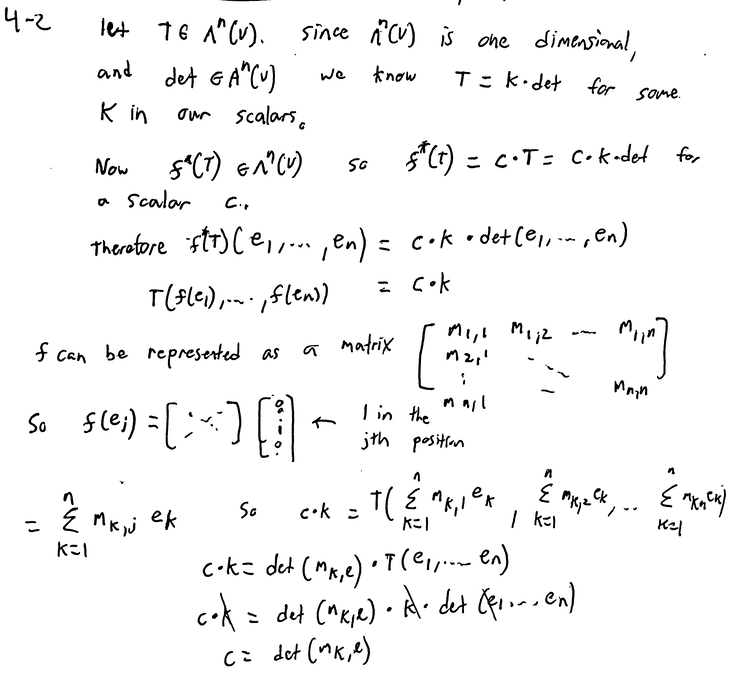 4-2 let T ∈ Λⁿ(V). since Λⁿ(V) is one dimensional,
and det ∈ Λⁿ(V) we know T = k·det for some
K in our scalars.
Now f*(T) ∈ Λⁿ(V) so f*(t) = c·T = c·k·det for
a scalar c.
Therefore f*(T)(e₁,...,eₙ) = c·k·det(e₁,...,eₙ)
T(f(e₁),...,f(eₙ)) = c·k
f can be represented as a matrix [ m₁,₁ m₁,₂ --- m₁,ₙ
m₂,₁ ⋱
⋮ – mₙ,ₙ
mₙ,₁ ]
So f(eⱼ) = [ ⋱ ] [ 0 ⋮ 1 ⋮ 0 ] ← 1 in the
jth position
= Σₖ₌₁ⁿ mₖ,ⱼ eₖ so c·k = T( Σₖ₌₁ⁿ mₖ,₁ eₖ , Σₖ₌₁ⁿ mₖ,₂ eₖ, ... Σₖ₌₁ⁿ mₖₙ eₖ)
c·k = det (mₖ,ₑ) · T(e₁,.... eₙ)
c·k = det (mₖ,ₑ) · k · det (e₁,... eₙ)
c = det (mₖ,ₑ)